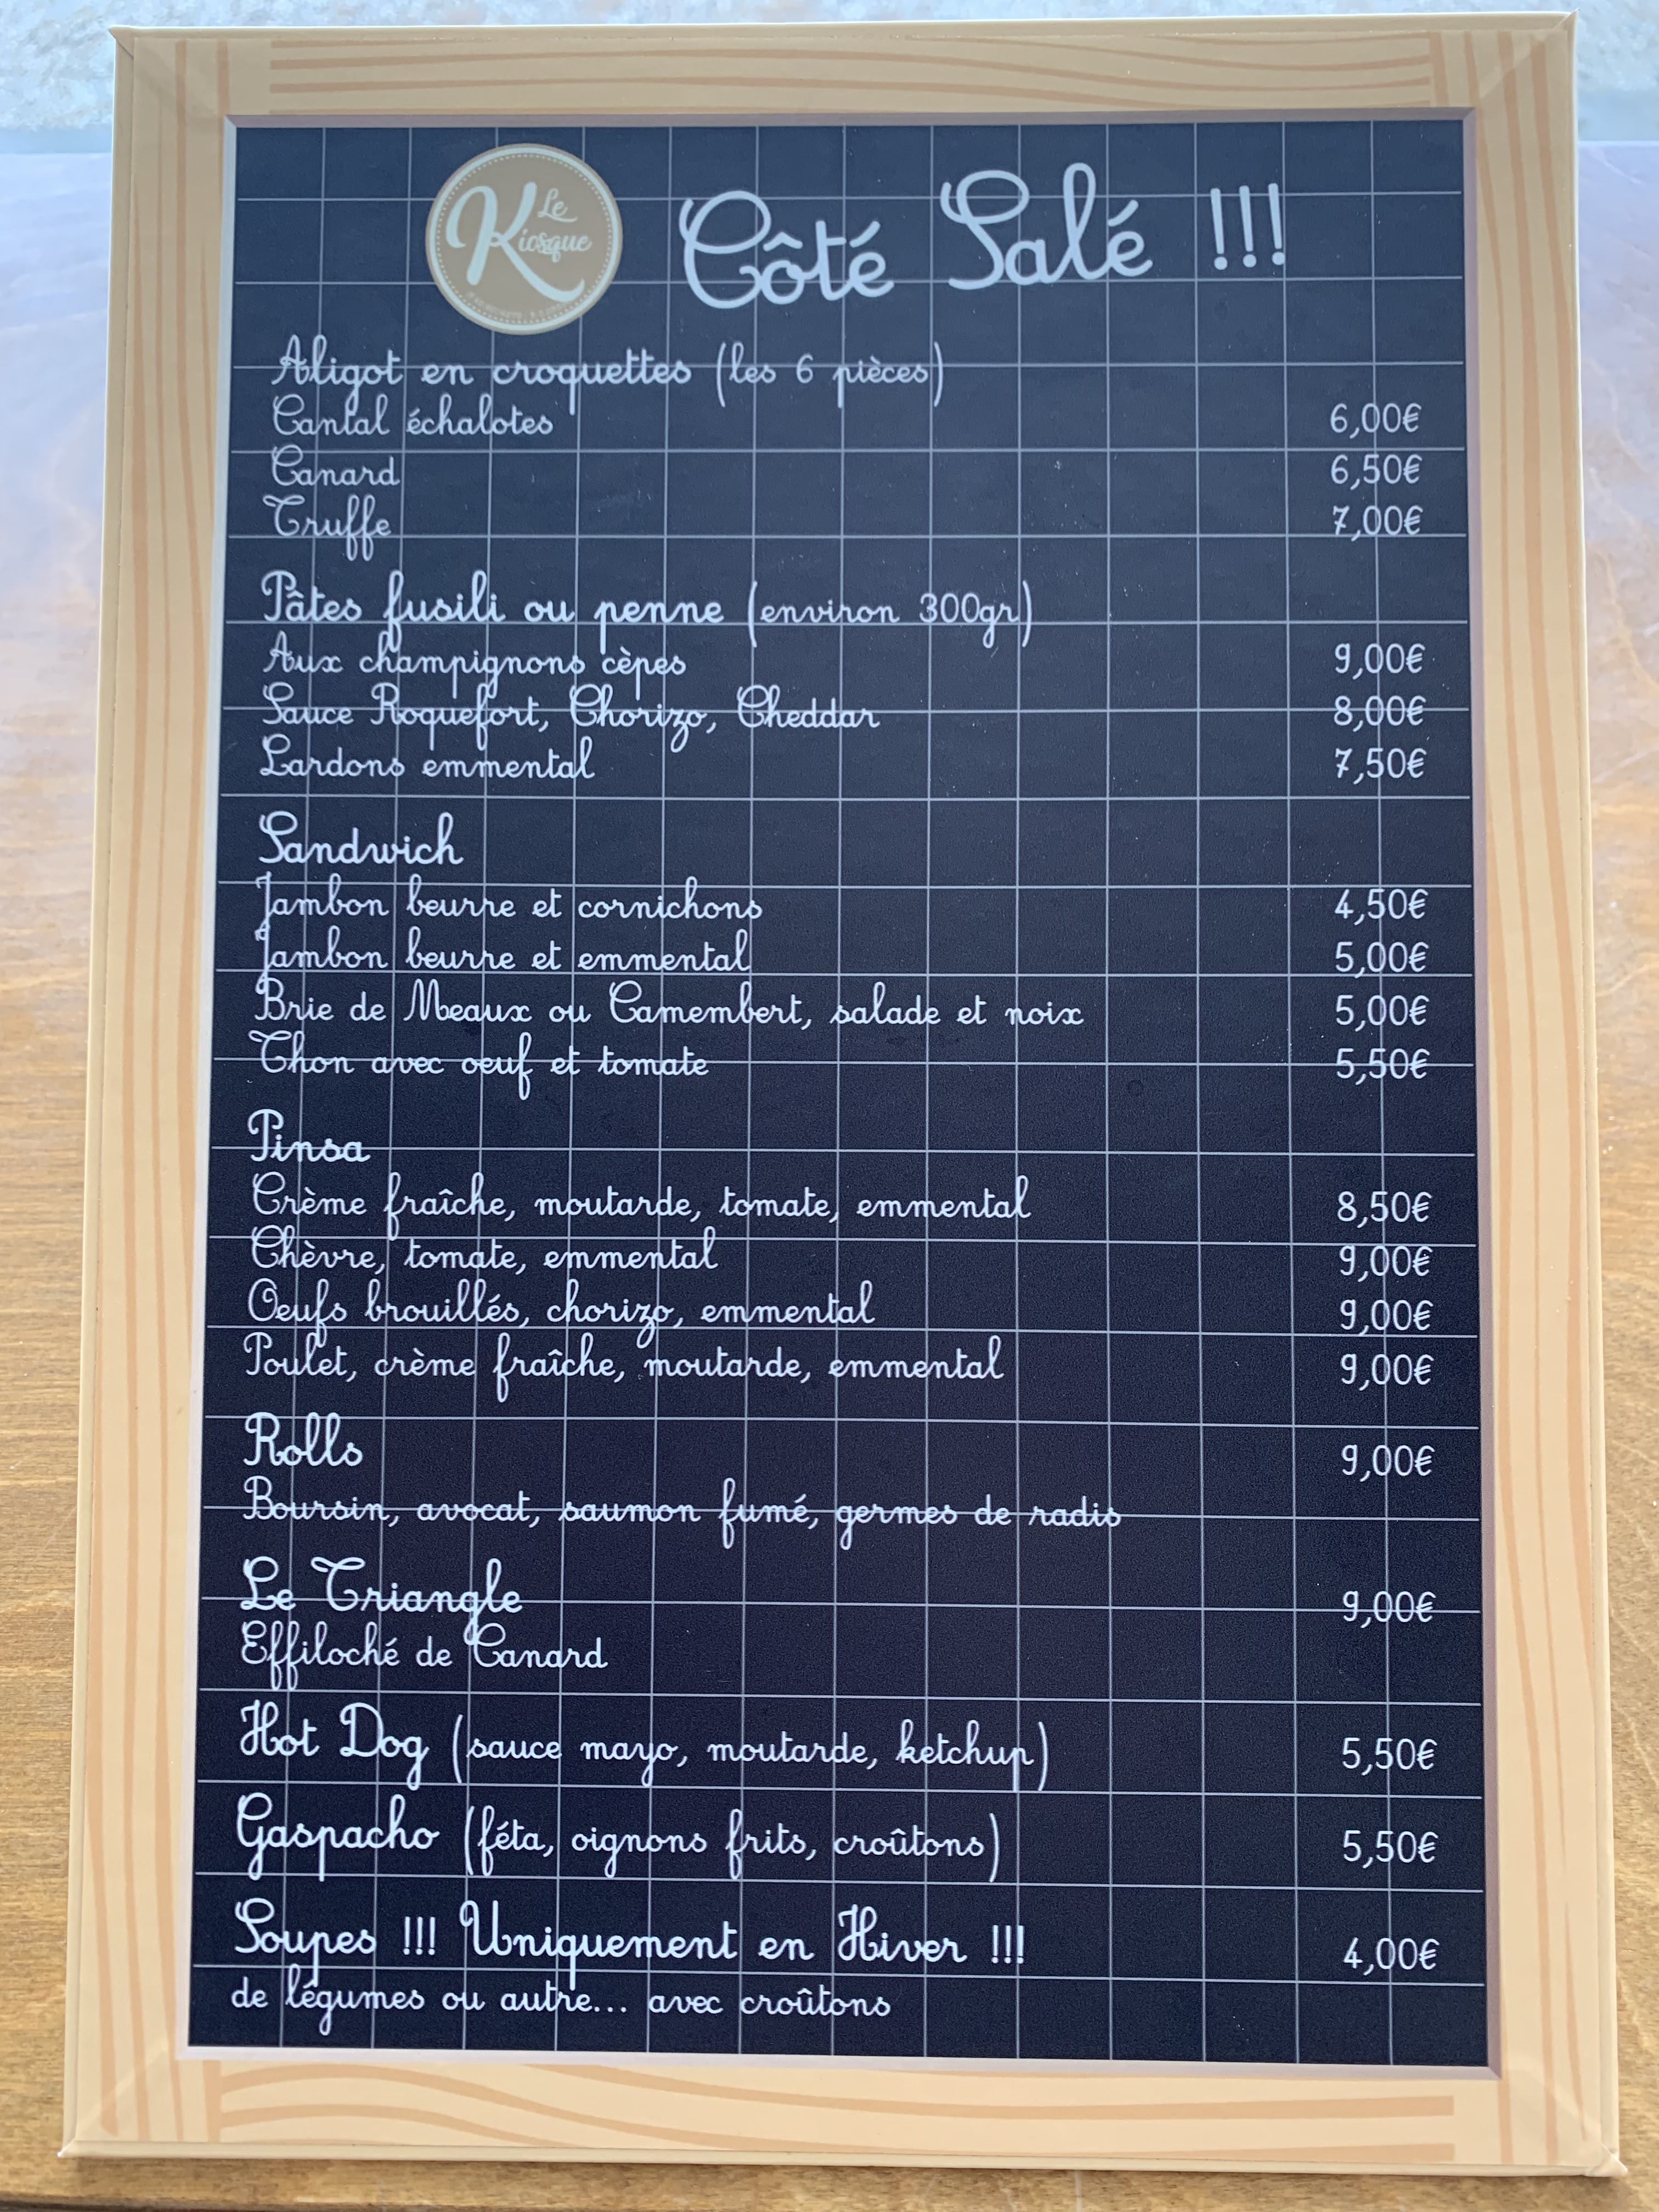 Le
Kiosque
Côté Salé !!!
Aligot en croquettes (les 6 pièces)
Cantal échalotes 6,00€
Canard 6,50€
Truffe 7,00€
Pâtes fusili ou penne (environ 300gr)
Aux champignons cèpes 9,00€
Sauce Roquefort, Chorizo, Cheddar 8,00€
Lardons emmental 7,50€
Sandwich
Jambon beurre et cornichons 4,50€
Jambon beurre et emmental 5,00€
Brie de Meaux ou Camembert, salade et noix 5,00€
Thon avec oeuf et tomate 5,50€
Pinsa
Crème fraîche, moutarde, tomate, emmental 8,50€
Chèvre, tomate, emmental 9,00€
Oeufs brouillés, chorizo, emmental 9,00€
Poulet, crème fraîche, moutarde, emmental 9,00€
Rolls 9,00€
Boursin, avocat, saumon fumé, germes de radis
Le Triangle 9,00€
Effiloché de Canard
Hot Dog (sauce mayo, moutarde, ketchup) 5,50€
Gaspacho (féta, oignons frits, croûtons) 5,50€
Soupes !!! Uniquement en Hiver !!! 4,00€
de légumes ou autre... avec croûtons